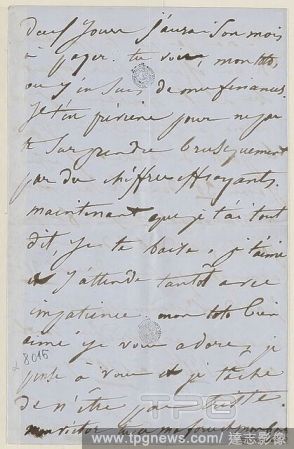 deux jours j'aurai son mois
à payer. tu vois, mon toto,
où j'en suis de mes finances.
Je t'en préviens pour ne pas
te surprendre brusquement
par des chiffres effrayants.
maintenant que je t'ai tout
dit, je te baise, je t'aime
et j'attends tantôt avec
impatience. mon toto bien
aimé je vous adore, je
pense à vous et je tâche
de n'être pas triste.
mon Victor
8015
TPG
www.tpgnews.com 達志影像